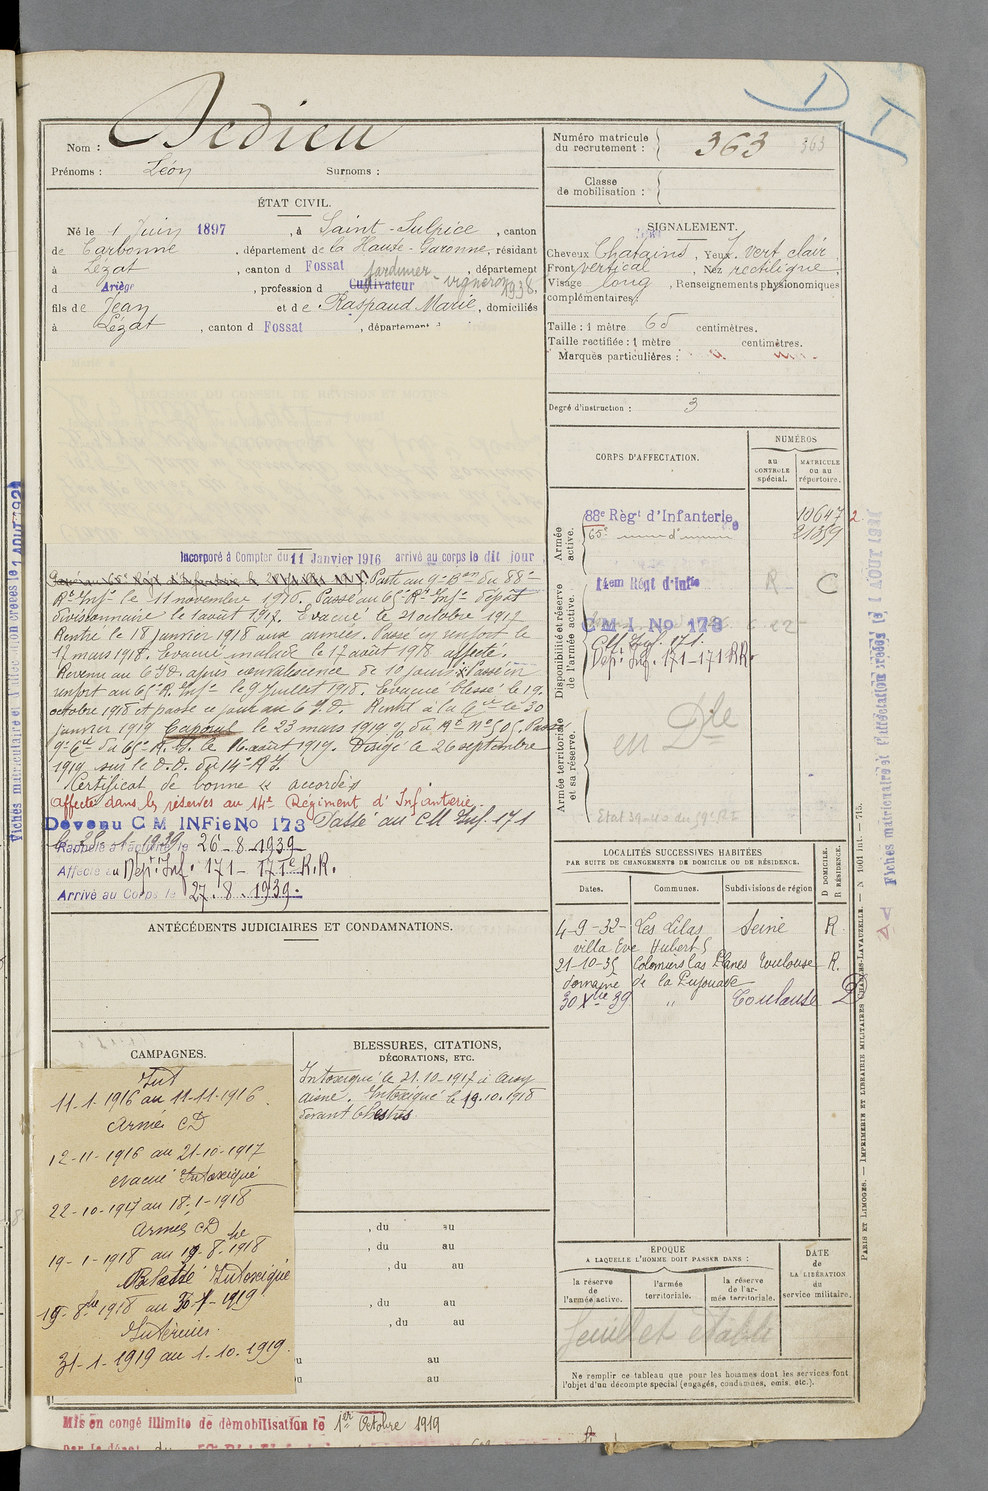 Nom : Dedieu
Prénoms : Léon Surnoms :
ÉTAT CIVIL.
Né le 1 Juin 1897, à Saint-Sulpice, canton
de Carbonne, département de la Haute-Garonne, résidant
à Lézat, canton d Fossat, département
d Ariège, profession d Cultivateur jardinier - vigneron 1938.
fils de Jean et de Raspaud Marie, domiciliés
à Lézat, canton d Fossat, département d
Incorporé à Compter du 11 Janvier 1916 arrivé au corps le dit jour
Passé au 9e Bon du 88e
Rt Infie le 11 novembre 1916. Passé au 65e Rt Infie dépôt
divisionnaire le 1 août 1917. Evacué le 21 octobre 1917
Rentré le 18 janvier 1918 aux armées. Passé en renfort le
17 mars 1918. Evacué malade le 17 août 1918 affecté.
Revenu au C.I.D. après convalescence de 10 jours. Passé en
renfort au 65e R. Infie le 9 juillet 1918. Evacué blessé le 19
octobre 1918 et passé ce jour au C.I.D. Rentré à la Cie le 30
janvier 1919 Caporal le 23 mars 1919 o/o du Rt No 505. Passé
9e Cie du 65e R.I. le 16 août 1919. Dirigé le 26 septembre
1919 sur le D.D. du 14e R.I.
Certificat de bonne accordé
Affecté dans les réserves au 14e Régiment d'Infanterie.
Devenu C M INFie No 173 Passé au CM Inf. 171
Rappelé à l'activité le 26-8-1939
Affecté au Dépt. Inf. 171 - 171e R.R.
Arrivé au Corps le 27.8.1939.
ANTÉCÉDENTS JUDICIAIRES ET CONDAMNATIONS.
CAMPAGNES.
Int
11-1-1916 au 11-11-1916.
Armées CD
12-11-1916 au 21-10-1917
evacué Intoxiqué
22-10-1917 au 18-1-1918
Armées CD
19-1-1918 au 19-8bre-1918
Blessé Intoxiqué
19-8bre 1918 au 30-1-1919
Intérieur.
31-1-1919 au 1-10-1919.
BLESSURES, CITATIONS,
DÉCORATIONS, ETC.
Intoxiqué le 21.10-1917 à
Aisne. Intoxiqué le 19.10.1918
devant Chestres
, du au
, du au
, du au
, du au
, du au
au
au
Mis en congé illimité de démobilisation le 1er Octobre 1919
Numéro matricule
du recrutement : 363 363
Classe
de mobilisation :
SIGNALEMENT.
Cheveux Chatains, Yeux vert clair,
Front vertical, Nez rectiligne,
Visage long, Renseignements physionomiques
complémentaires :
Taille : 1 mètre 65 centimètres.
Taille rectifiée : 1 mètre centimètres.
Marques particulières :
Degré d'instruction : 3
CORPS D'AFFECTATION.
NUMÉROS
au
CONTROLE
spécial.
MATRICULE
ou au
répertoire.
Armée
active.
88e Règt d'Infanterie 10647
65e d° 21359
Disponibilité et réserve
de l'armée active.
14em Régt d'Infie R C
C M I No 173
CM Inf. 171
Dépt. Inf. 171-171 RR.
Armée territoriale
et sa réserve.
en Dle
LOCALITÉS SUCCESSIVES HABITÉES
PAR SUITE DE CHANGEMENTS DE DOMICILE OU DE RÉSIDENCE.
Dates. Communes. Subdivisions de région D DOMICILE. R RÉSIDENCE.
4-9-32- Les Lilas Seine R.
villa Eve Hubert 5
21-10-35 Colomiers Las Planes Toulouse R.
domaine de la Pujouade
30 Xbre 39 " Toulouse D
ÉPOQUE
A LAQUELLE L'HOMME DOIT PASSER DANS :
DATE
de
LA LIBÉRATION
du
service militaire.
la réserve
de
l'armée active.
l'armée
territoriale.
la réserve
de l'ar-
mée territoriale.
feuillet établi
Ne remplir ce tableau que pour les hommes dont les services font
l'objet d'un décompte spécial (engagés, condamnés, omis, etc.).
PARIS ET LIMOGES. — IMPRIMERIE ET LIBRAIRIE MILITAIRES CHARLES-LAVAUZELLE. — N° 1601 Int. — 715.
Fiches matriculaire et d'affectation créées le 1 AOUT 1929
Fiches matriculaire et d'affectation créées le 1 AOUT 1929